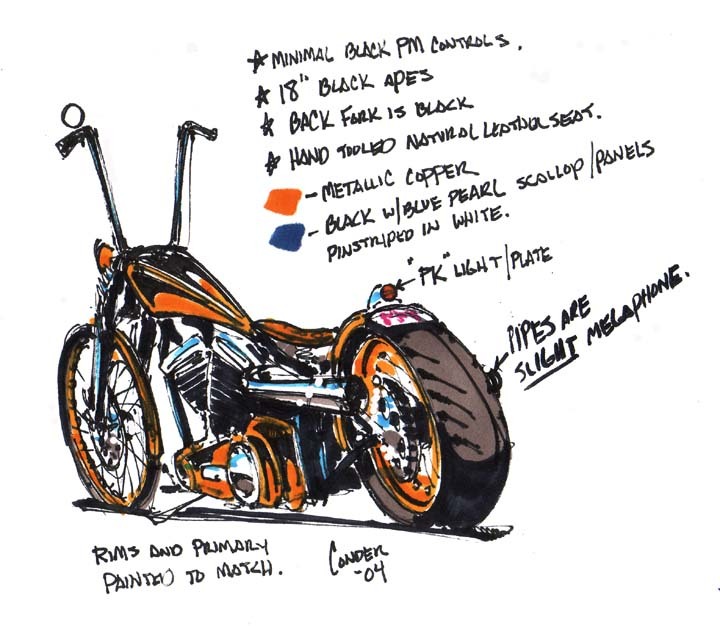 ★ MINIMAL BLACK PM CONTROLS.
★ 18" BLACK APES
★ BACK FORK IS BLACK
★ HAND TOOLED NATURAL LEATHER SEAT.
- METALLIC COPPER
- BLACK W/BLUE PEARL SCOLLOP/PANELS
PINSTRIPED IN WHITE.
"PK" LIGHT/PLATE
PIPES ARE
SLIGHT MEGAPHONE.
RIMS AND PRIMARY
PAINTED TO MATCH.
CONDER
-04